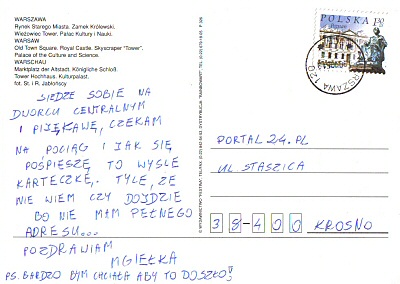 WARSZAWA
Rynek Starego Miasta. Zamek Królewski.
Wieżowiec Tower. Pałac Kultury i Nauki.
WARSAW
Old Town Square. Royal Castle. Skyscraper "Tower".
Palace of the Culture and Science.
WARSCHAU
Marktplatz der Altstadt. Königliche Schloß.
Tower Hochhaus. Kulturpalast.
fot. St. i R. Jabłońscy
SIEDZE SOBIE NA
DWORCU CENTRALNYM
I PIJĘ KAWĘ, CZEKAM
NA POCIĄG I JAK SIĘ
POŚPIESZĘ TO WYŚLE
KARTECZKĘ. TYLE, ŻE
NIE WIEM CZY DOJDZIE
BO NIE MAM PEŁNEGO
ADRESU...
POZDRAWIAM
MGIEŁKA
PS. BARDZO BYM CHCIAŁA ABY TO DOSZŁO
POLSKA 1,30
WARSZAWA 120
PORTAL 24.PL
UL STASZICA
38-400 KROSNO